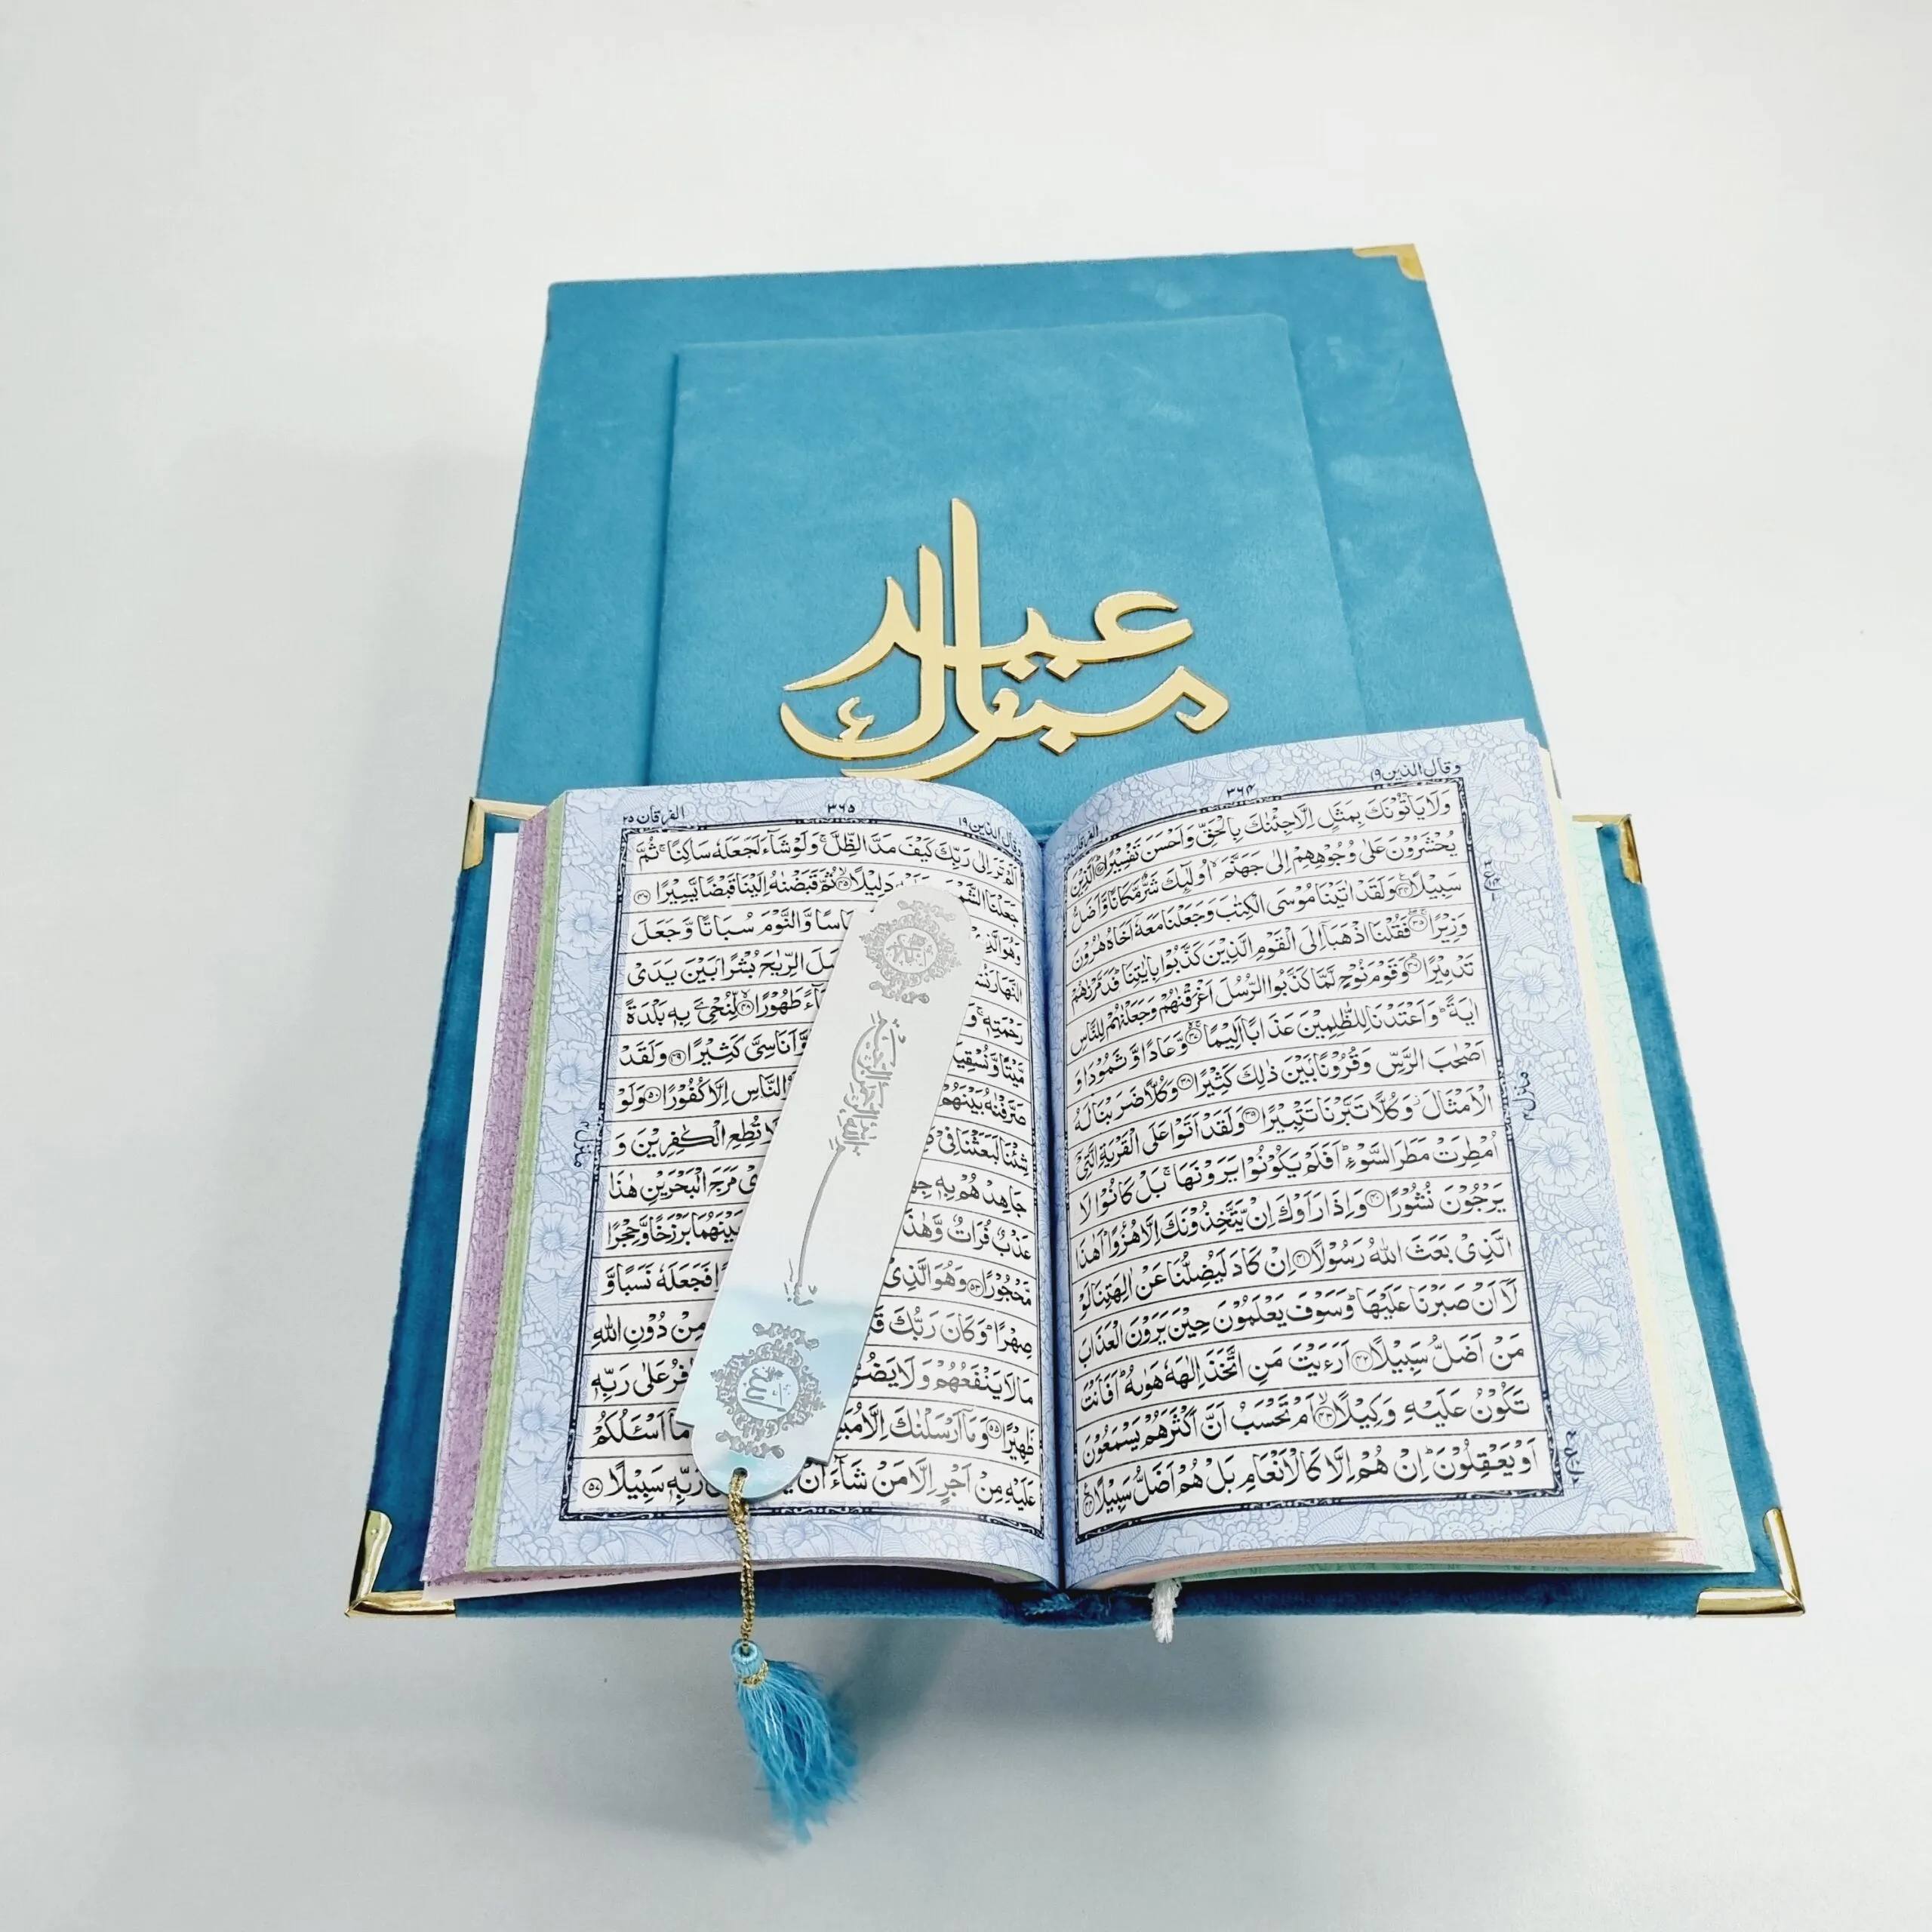 عيد
مبارك
وقال الذين ١٩
٣٦٤
الفرقان
وَلَا يَاْتُوْنَكَ بِمَثَلٍ اِلَّا جِئْنٰكَ بِالْحَقِّ وَاَحْسَنَ تَفْسِيْرًا ۳۳ اَلَّذِيْنَ
يُحْشَرُوْنَ عَلٰى وُجُوْهِهِمْ اِلٰى جَهَنَّمَ ۙ اُولٰٓئِكَ شَرٌّ مَّكَانًا وَّاَضَلُّ
سَبِيْلًا ۳۴ وَلَقَدْ اٰتَيْنَا مُوْسَى الْكِتٰبَ وَجَعَلْنَا مَعَهٗٓ اَخَاهُ هٰرُوْنَ
وَزِيْرًا ۳۵ فَقُلْنَا اذْهَبَآ اِلَى الْقَوْمِ الَّذِيْنَ كَذَّبُوْا بِاٰيٰتِنَا ؕ فَدَمَّرْنٰهُمْ
تَدْمِيْرًا ۳۶ وَقَوْمَ نُوْحٍ لَّمَّا كَذَّبُوا الرُّسُلَ اَغْرَقْنٰهُمْ وَجَعَلْنٰهُمْ لِلنَّاسِ
اٰيَةً ؕ وَاَعْتَدْنَا لِلظّٰلِمِيْنَ عَذَابًا اَلِيْمًا ۳۷ وَّعَادًا وَّثَمُوْدَا۟ وَ
اَصْحٰبَ الرَّسِّ وَقُرُوْنًۢا بَيْنَ ذٰلِكَ كَثِيْرًا ۳۸ وَكُلًّا ضَرَبْنَا لَهُ
الْاَمْثَالَ ؗ وَكُلًّا تَبَّرْنَا تَتْبِيْرًا ۳۹ وَلَقَدْ اَتَوْا عَلَى الْقَرْيَةِ الَّتِيْٓ
اُمْطِرَتْ مَطَرَ السَّوْءِ ؕ اَفَلَمْ يَكُوْنُوْا يَرَوْنَهَا ۚ بَلْ كَانُوْا لَا
يَرْجُوْنَ نُشُوْرًا ۴۰ وَاِذَا رَاَوْكَ اِنْ يَّتَّخِذُوْنَكَ اِلَّا هُزُوًا ؕ اَهٰذَا
الَّذِيْ بَعَثَ اللّٰهُ رَسُوْلًا ۴۱ اِنْ كَادَ لَيُضِلُّنَا عَنْ اٰلِهَتِنَا لَوْ
لَآ اَنْ صَبَرْنَا عَلَيْهَا ؕ وَسَوْفَ يَعْلَمُوْنَ حِيْنَ يَرَوْنَ الْعَذَابَ
مَنْ اَضَلُّ سَبِيْلًا ۴۲ اَرَءَيْتَ مَنِ اتَّخَذَ اِلٰهَهٗ هَوٰىهُ ؕ اَفَاَنْتَ
تَكُوْنُ عَلَيْهِ وَكِيْلًا ۴۳ اَمْ تَحْسَبُ اَنَّ اَكْثَرَهُمْ يَسْمَعُوْنَ
اَوْ يَعْقِلُوْنَ ؕ اِنْ هُمْ اِلَّا كَالْاَنْعَامِ بَلْ هُمْ اَضَلُّ سَبِيْلًا ۴۴
منزل۴
وقال الذين ١٩
٣٦٥
الفرقان ٢٥
اَلَمْ تَرَ اِلٰى رَبِّكَ كَيْفَ مَدَّ الظِّلَّ ۚ وَلَوْ شَآءَ لَجَعَلَهٗ سَاكِنًا ۚ ثُمَّ
جَعَلْنَا الشَّمْسَ عَلَيْهِ دَلِيْلًا ۴۵ ثُمَّ قَبَضْنٰهُ اِلَيْنَا قَبْضًا يَّسِيْرًا ۴۶
وَهُوَ الَّذِيْ اسًا وَّالنَّوْمَ سُبَاتًا وَّجَعَلَ
النَّهَارَ نُشُ سَلَ الرِّيٰحَ بُشْرًۢا بَيْنَ يَدَيْ
رَحْمَتِهٖ ۚ وَ آءً طَهُوْرًا ۴۸ لِّنُحْيِۦَ بِهٖ بَلْدَةً
مَّيْتًا وَّنُسْقِيَ وَّاَنَاسِيَّ كَثِيْرًا ۴۹ وَلَقَدْ
صَرَّفْنٰهُ بَيْنَهُمْ النَّاسِ اِلَّا كُفُوْرًا ۵۰ وَلَوْ
شِئْنَا لَبَعَثْنَا فِيْ لَا تُطِعِ الْكٰفِرِيْنَ وَ
جَاهِدْهُمْ بِهٖ جِهَا يْ مَرَجَ الْبَحْرَيْنِ هٰذَا
عَذْبٌ فُرَاتٌ وَّهٰذَا بَيْنَهُمَا بَرْزَخًا وَّحِجْرًا
مَّحْجُوْرًا ۵۳ وَهُوَ الَّذِيْ فَجَعَلَهٗ نَسَبًا وَّ
صِهْرًا ؕ وَكَانَ رَبُّكَ قَ مِنْ دُوْنِ اللّٰهِ
مَا لَا يَنْفَعُهُمْ وَلَا يَضُرُّ فِرُ عَلٰى رَبِّهٖ
ظَهِيْرًا ۵۵ وَمَآ اَرْسَلْنٰكَ اِلَّا مُبَ مَآ اَسْـَٔلُكُمْ
عَلَيْهِ مِنْ اَجْرٍ اِلَّا مَنْ شَآءَ اَنْ يَّ رَبِّهٖ سَبِيْلًا ۵۷
منزل۴
محمد
بسم الله الرحمن الرحيم
الله